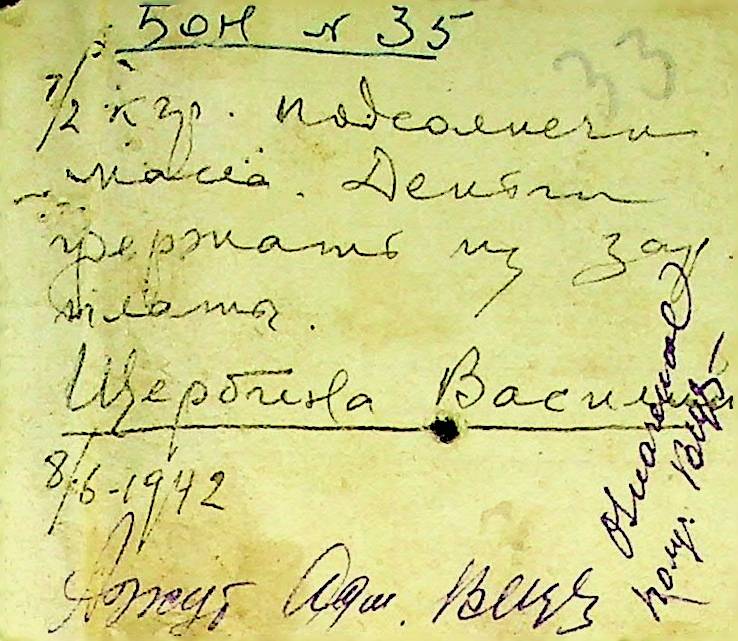 БОН № 35
33
1/2 кгр. подсолнечн.
масла. Деньги
удержать из зар.
платы.
Щербина Василий
8/6-1942
Адм.
получ.